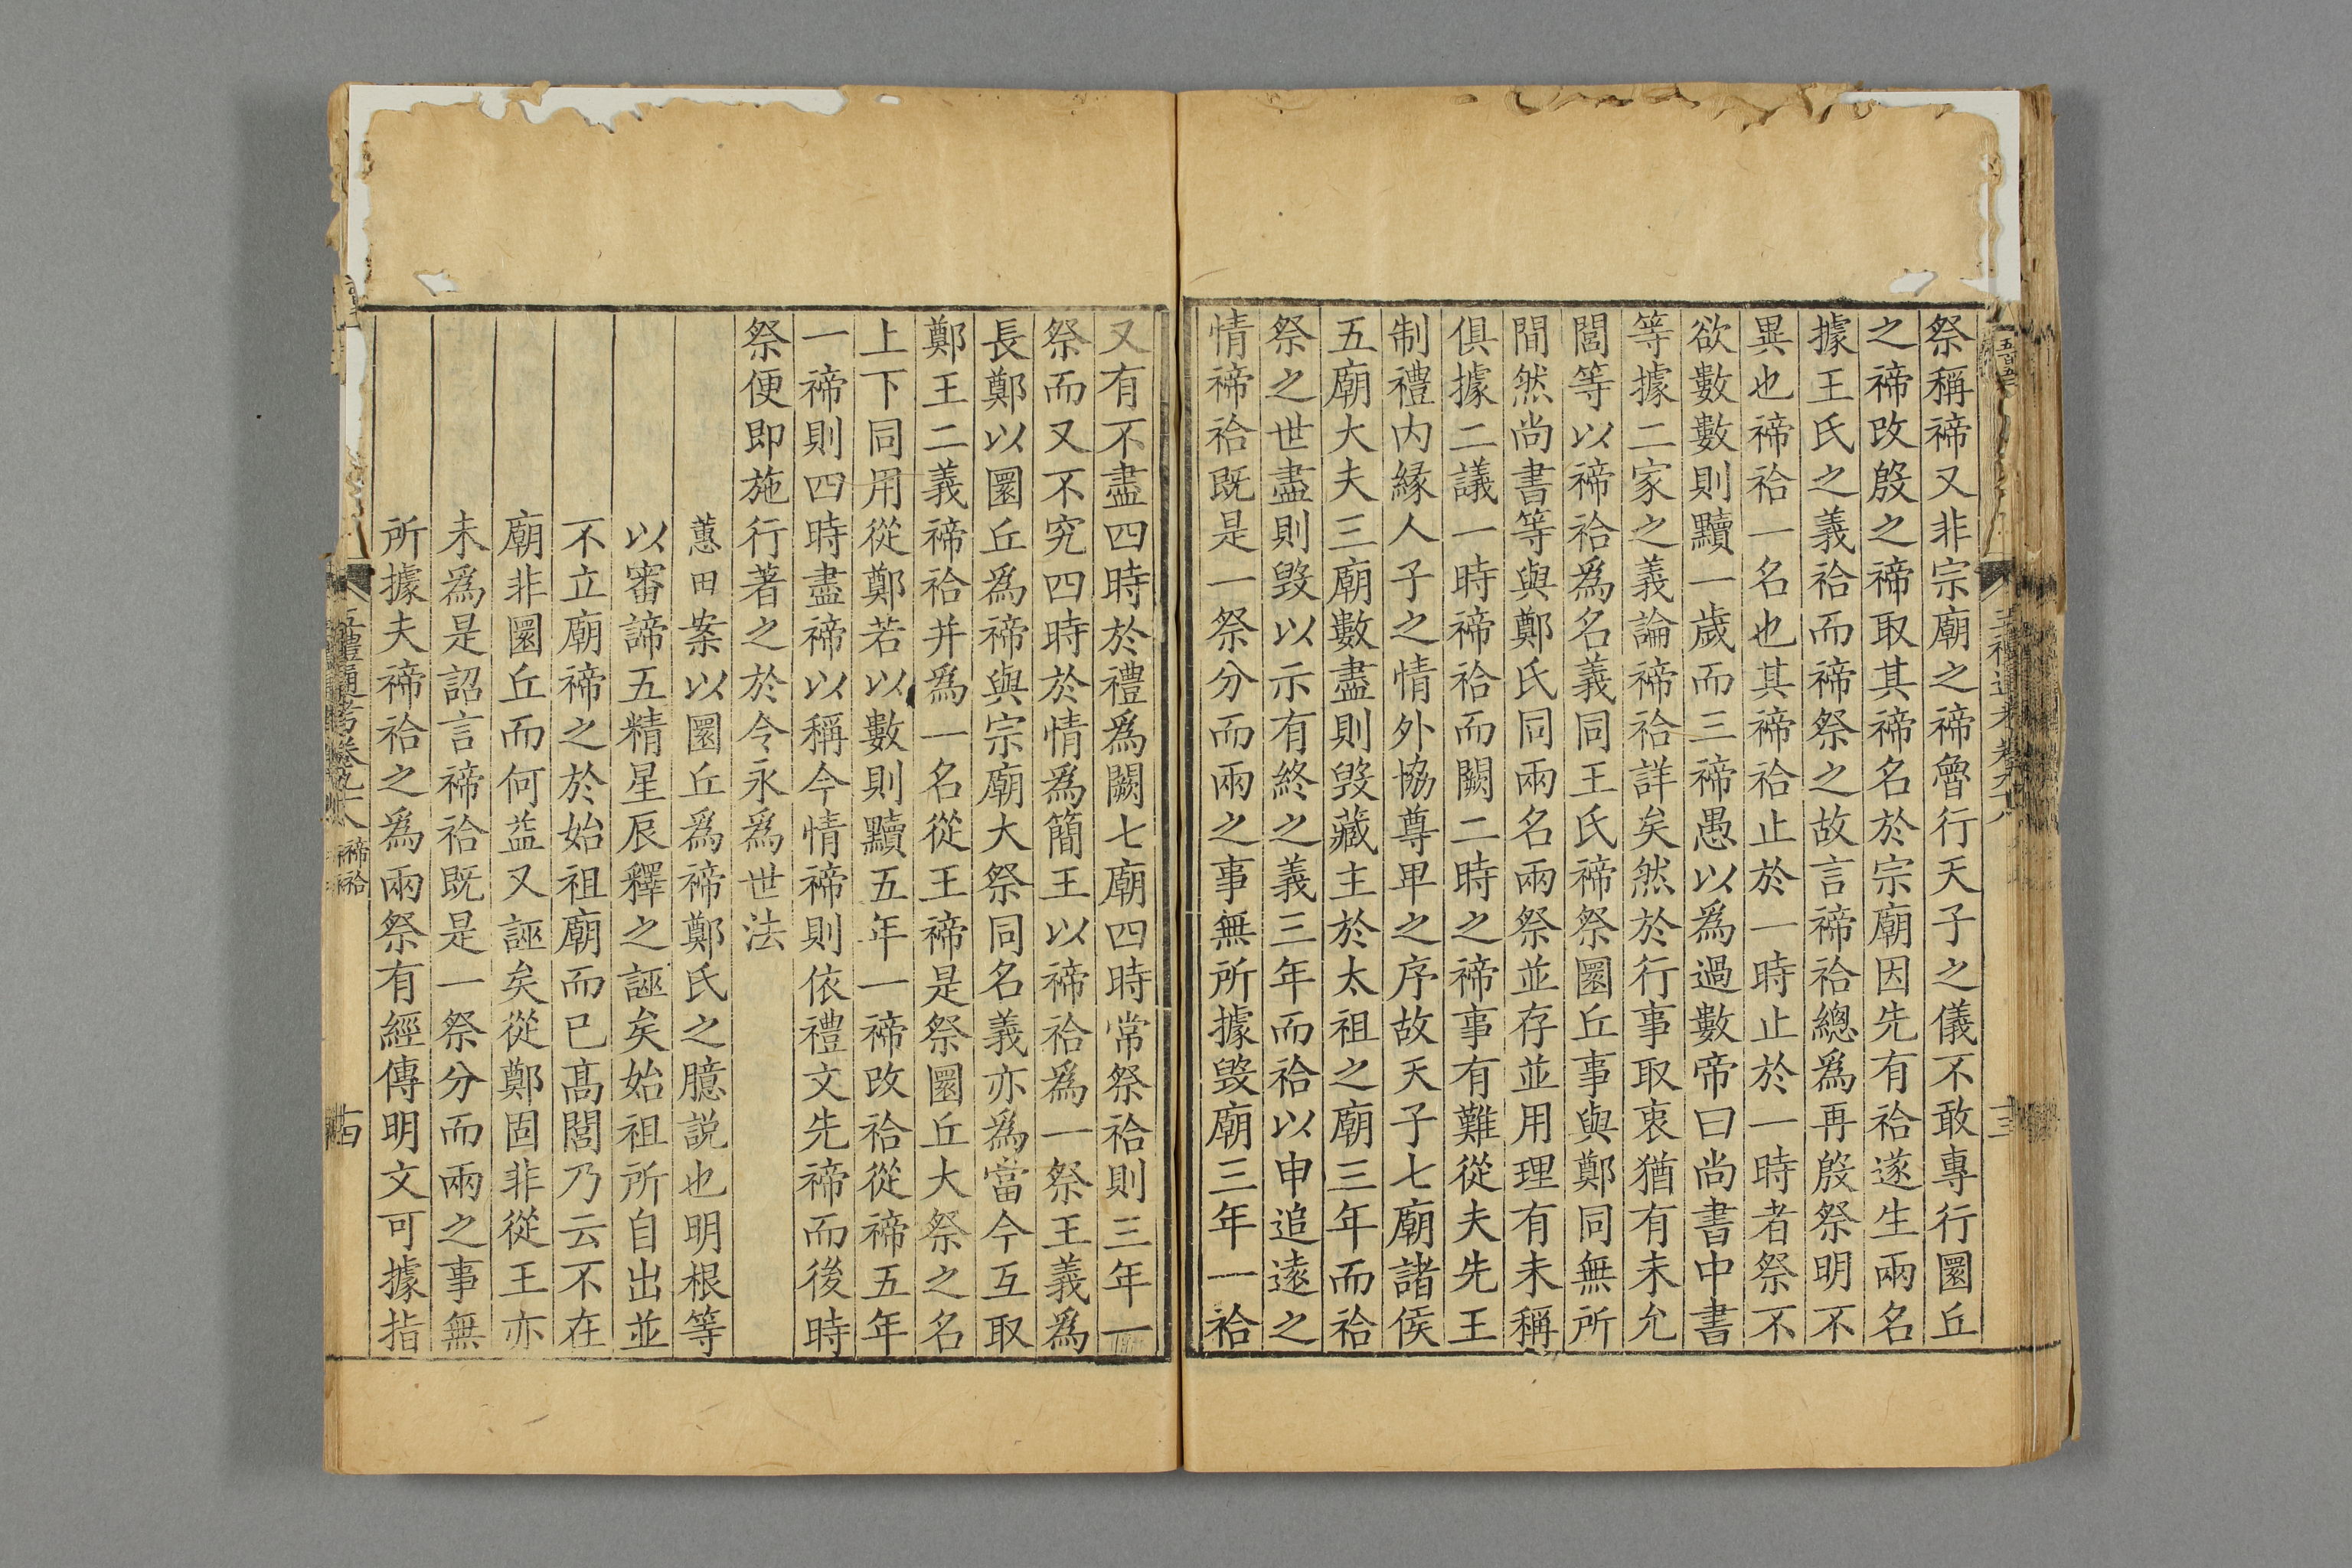 祭稱禘又非宗廟之禘魯行天子之儀不敢專行圜丘
之禘改殷之禘取其禘名於宗廟因先有祫遂生兩名
據王氏之義祫而禘祭之故言禘祫總爲再殷祭明不
異也禘祫一名也其禘祫止於一時止於一時者祭不
欲數數則黷一歲而三禘愚以爲過數帝曰尚書中書
等據二家之義論禘祫詳矣然於行事取衷猶有未允
閭等以禘祫爲名義同王氏禘祭圜丘事與鄭同無所
間然尚書等與鄭氏同兩名兩祭並存並用理有未稱
俱據二議一時禘祫而闕二時之禘事有難從夫先王
制禮内縁人子之情外協尊卑之序故天子七廟諸侯
五廟大夫三廟數盡則毁藏主於太祖之廟三年而祫
祭之世盡則毁以示有終之義三年而祫以申追遠之
情禘祫既是一祭分而兩之事無所據毁廟三年一祫
又有不盡四時於禮爲闕七廟四時常祭祫則三年一
祭而又不究四時於情爲簡王以禘祫爲一祭王義爲
長鄭以圜丘爲禘與宗廟大祭同名義亦爲當今互取
鄭王二義禘祫并爲一名從王禘是祭圜丘大祭之名
上下同用從鄭若以數則黷五年一禘改祫從禘五年
一禘則四時盡禘以稱今情禘則依禮文先禘而後時
祭便即施行著之於令永爲世法
蕙田案以圜丘爲禘鄭氏之臆説也明根等
以審諦五精星辰釋之誣矣始祖所自出並
不立廟禘之於始祖廟而已髙閭乃云不在
廟非圜丘而何益又誣矣從鄭固非從王亦
未爲是詔言禘祫既是一祭分而兩之事無
所據夫禘祫之爲兩祭有經傳明文可據指
五禮通考卷九十八
禘祫
十四